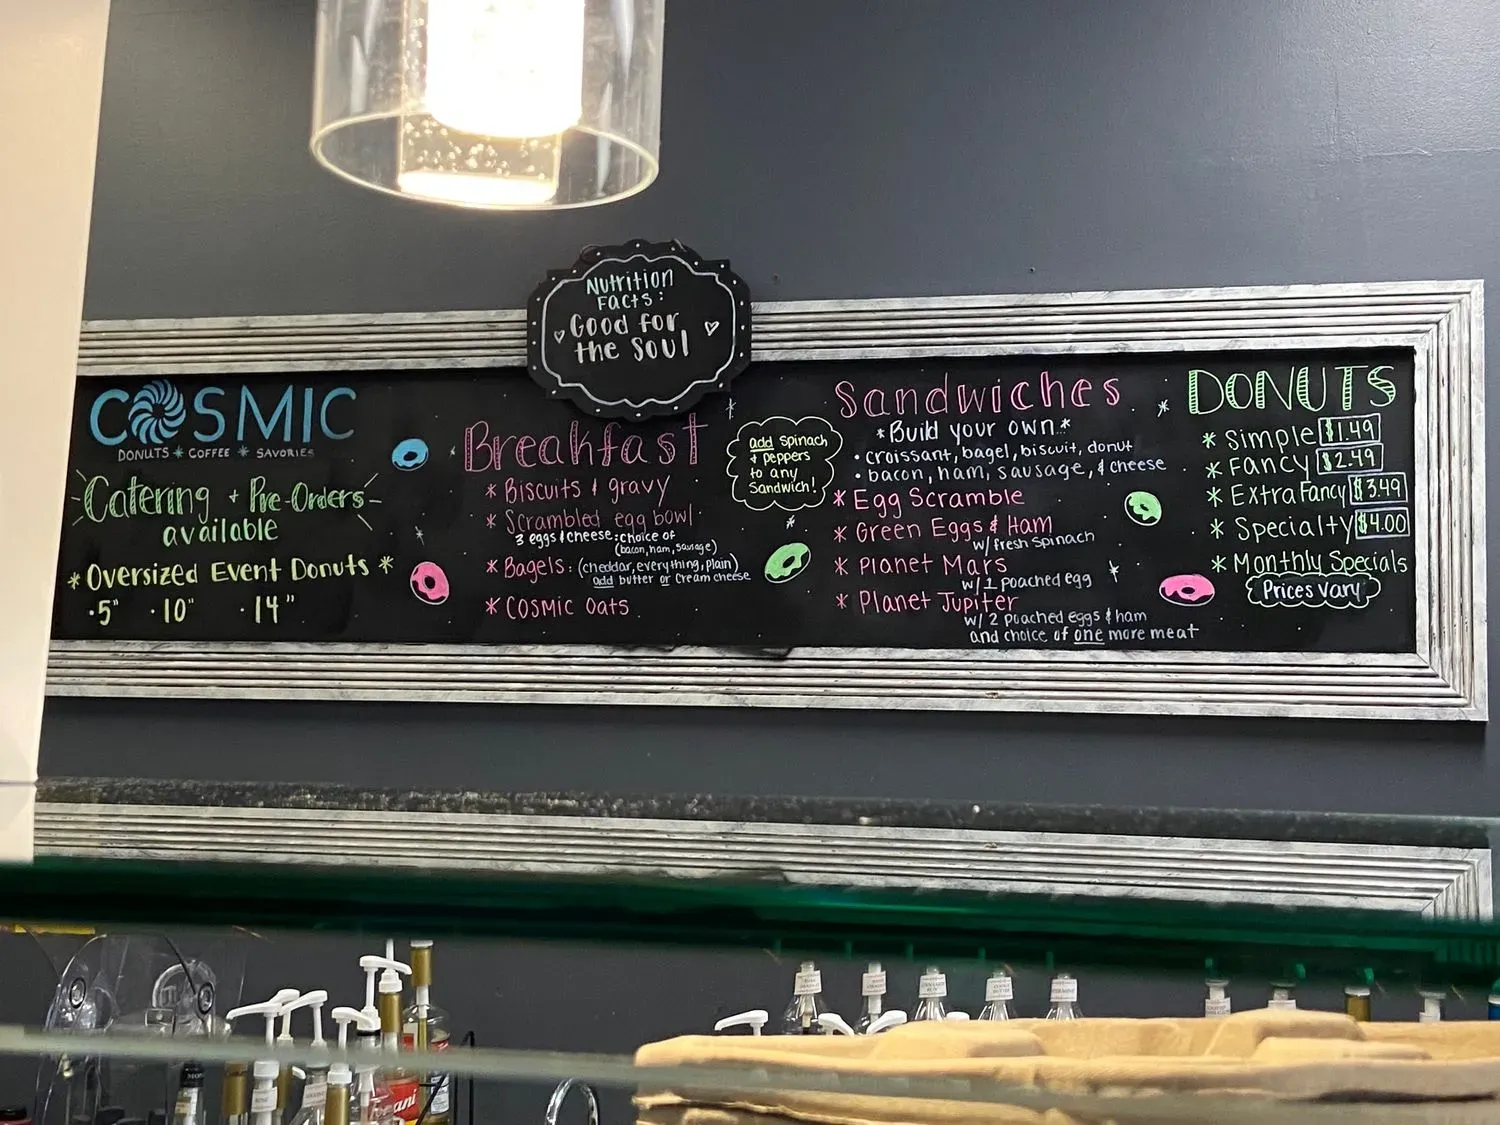 Nutrition
Facts:
Good for
the Soul
COSMIC
DONUTS * COFFEE * SAVORIES
Catering + Pre-Orders
available
* Oversized Event Donuts *
· 5" · 10" · 14"
Breakfast
* Biscuits & gravy
* Scrambled egg bowl
3 eggs & cheese: choice of
(bacon, ham, sausage)
* Bagels: (cheddar, everything, plain)
add butter or cream cheese
* Cosmic Oats
add spinach
& peppers
to any
Sandwich!
Sandwiches
* Build your own *
· croissant, bagel, biscuit, donut
· bacon, ham, sausage, & cheese
* Egg Scramble
* Green Eggs & Ham
w/ fresh spinach
* Planet Mars
w/ 1 poached egg
* Planet Jupiter
w/ 2 poached eggs & ham
and choice of one more meat
DONUTS
* Simple $1.49
* Fancy $2.49
* Extra Fancy $3.49
* Specialty $4.00
* Monthly Specials
Prices vary